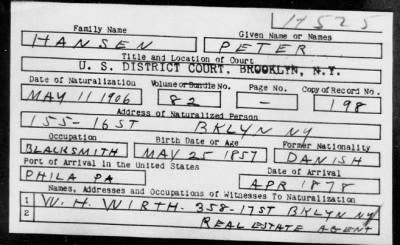 H525
Family Name Given Name or Names
HANSEN PETER
Title and Location of Court
U. S. DISTRICT COURT, BROOKLYN, N.Y.
Date of Naturalization Volume or Bundle No. Page No. Copy of Record No.
MAY 11 1906 82 - 198
Address of Naturalized Person
155-16 ST BKLYN NY
Occupation Birth Date or Age Former Nationality
BLACKSMITH MAY 25 1857 DANISH
Port of Arrival in the United States Date of Arrival
PHILA PA APR 1878
Names, Addresses and Occupations of Witnesses To Naturalization
1 W. H. WIRTH - 358-17 ST BKLYN NY
2 REAL ESTATE AGENT